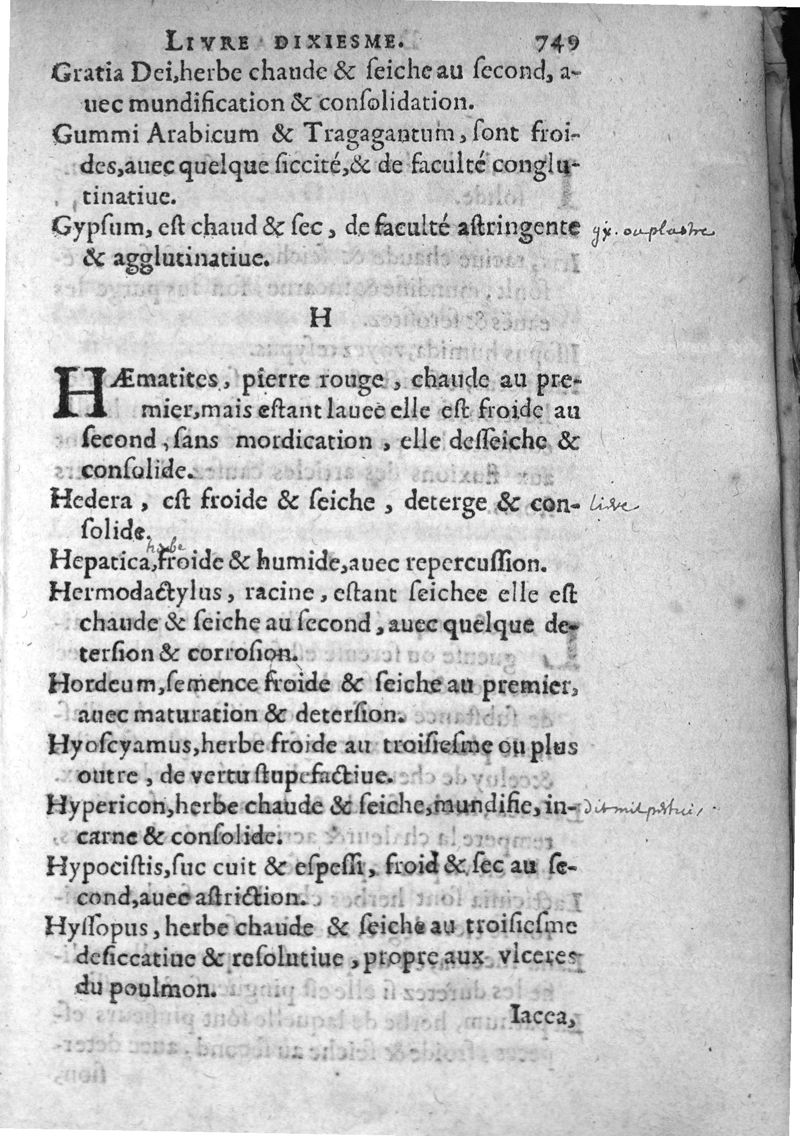 LIVRE DIXIESME. 749
Gratia Dei, herbe chaude & ſeiche au ſecond, a-
uec mundification & conſolidation.
Gummi Arabicum & Tragagantum, ſont froi-
des, auec quelque ſiccité, & de faculté conglu-
tinatiue.
Gypſum, eſt chaud & ſec, de faculté aſtringente gx. ou plastre
& agglutinatiue.
H
HÆmatites, pierre rouge, chaude au pre-
mier, mais eſtant lauee elle eſt froide au
ſecond, ſans mordication, elle deſſeiche &
conſolide.
Hedera, eſt froide & ſeiche, deterge & con- lierre
ſolide.
herbe
Hepatica, froide & humide, auec repercuſſion.
Hermodactylus, racine, eſtant ſeichee elle eſt
chaude & ſeiche au ſecond, auec quelque de-
terſion & corroſion.
Hordeum, ſemence froide & ſeiche au premier,
auec maturation & deterſion.
Hyoſcyamus, herbe froide au troiſieſme ou plus
outre, de vertu ſtupefactiue.
Hypericon, herbe chaude & ſeiche, mundifie, in- dit mil
carne & conſolide.
Hypociſtis, ſuc cuit & eſpeſſi, froid & ſec au ſe-
cond, auec aſtriction.
Hyſſopus, herbe chaude & ſeiche au troiſieſme
deſiccatiue & reſolutiue, propre aux vlceres
du poulmon.
Iacea,